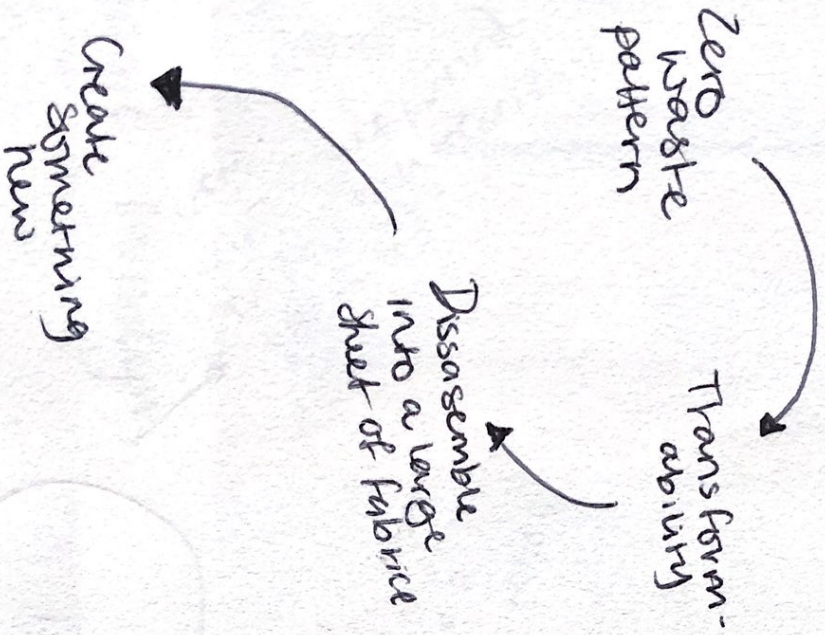 Zero
waste
pattern
Transform-
ability
Dissasemble
into a large
sheet of fabrice
Create
something
new